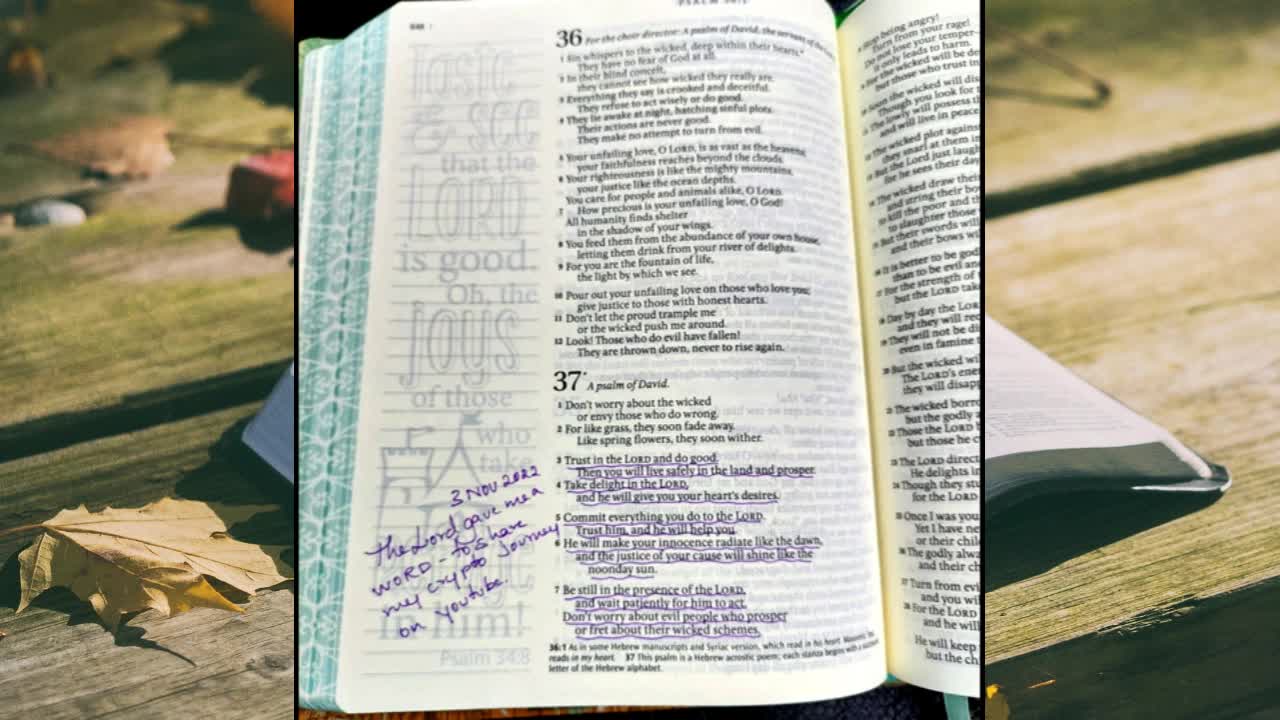 36 For the choir director: A psalm of David, the servant of the
1 Sin whispers to the wicked, deep within their hearts.*
They have no fear of God at all.
2 In their blind conceit,
they cannot see how wicked they really are.
3 Everything they say is crooked and deceitful.
They refuse to act wisely or do good.
4 They lie awake at night, hatching sinful plots.
Their actions are never good.
They make no attempt to turn from evil.
5 Your unfailing love, O LORD, is as vast as the heavens;
your faithfulness reaches beyond the clouds.
6 Your righteousness is like the mighty mountains,
your justice like the ocean depths.
You care for people and animals alike, O LORD.
7 How precious is your unfailing love, O God!
All humanity finds shelter
in the shadow of your wings.
8 You feed them from the abundance of your own house,
letting them drink from your river of delights.
9 For you are the fountain of life,
the light by which we see.
10 Pour out your unfailing love on those who love you;
give justice to those with honest hearts.
11 Don't let the proud trample me
or the wicked push me around.
12 Look! Those who do evil have fallen!
They are thrown down, never to rise again.
37* A psalm of David.
1 Don't worry about the wicked
or envy those who do wrong.
2 For like grass, they soon fade away.
Like spring flowers, they soon wither.
3 Trust in the LORD and do good.
Then you will live safely in the land and prosper.
4 Take delight in the LORD,
and he will give you your heart's desires.
5 Commit everything you do to the LORD.
Trust him, and he will help you.
6 He will make your innocence radiate like the dawn,
and the justice of your cause will shine like the
noonday sun.
7 Be still in the presence of the LORD,
and wait patiently for him to act.
Don't worry about evil people who prosper
or fret about their wicked schemes.
36:1 As in some Hebrew manuscripts and Syriac version, which read in his heart. Masoretic
reads in my heart. 37 This psalm is a Hebrew acrostic poem; each stanza begins with a
letter of the Hebrew alphabet.
Taste
& see
that the
LORD
is good.
Oh, the
joys
of those
who
take
in him!
Psalm 34:8
3 NOV 2022
The Lord gave me a
WORD - to share
my crypto journey
on youtube.
Stop being angry!
Turn from your rage!
Do not lose your temper—
it only leads to harm.
For the wicked will be
but those who trust in
Soon the wicked will
Though you look for
The lowly will possess
and will live in peace
The wicked plot against
they snarl at them in
But the Lord just
for he sees their
The wicked draw their
and string their
to kill the poor and
to slaughter those
But their swords will
and their bows
It is better to be
than to be evil and
For the strength of
but the LORD
Day by day the
and they will
They will not be
even in famine
But the wicked
The LORD's
they will
The wicked
but the godly
Those the
but those he
The LORD
He delights
Though they
for the LORD
Once I was
Yet I have
or their
The godly
and their
Turn from
and you
For the LORD
and he
He will keep
but the